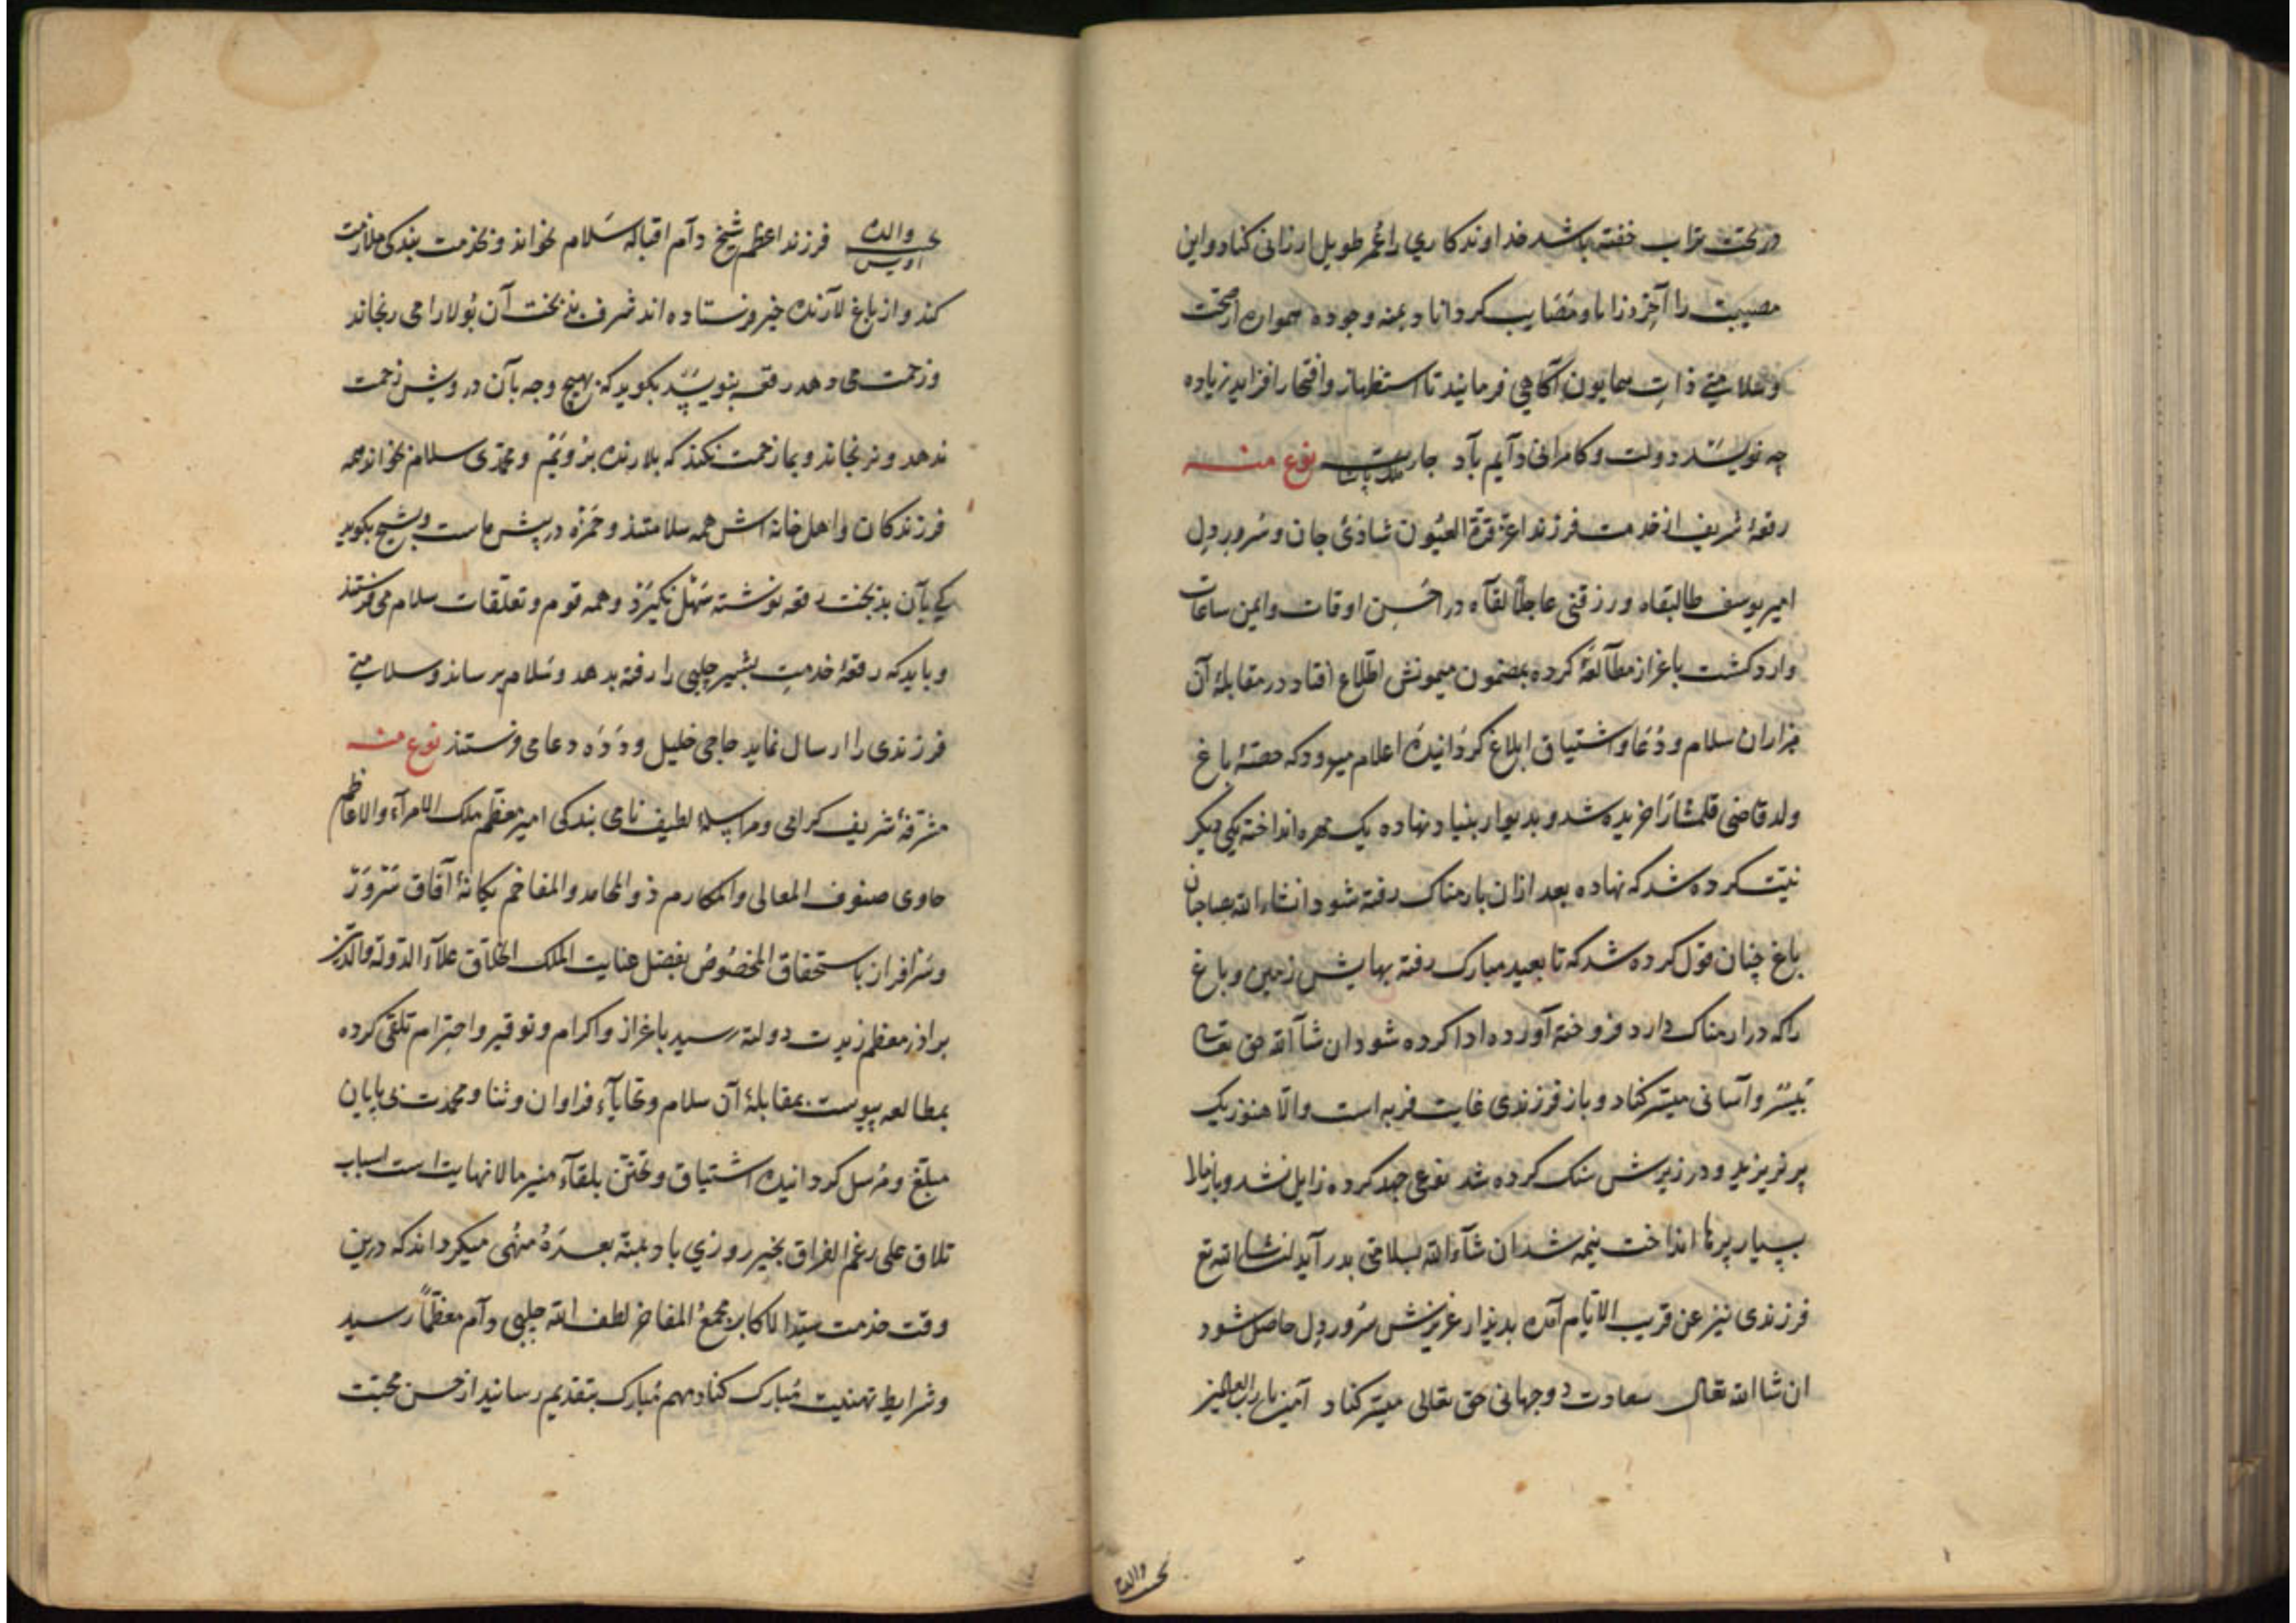 در تحت تراب خفته باشد خداوندكاری را عمر طویل ارزانی كناد و این
مصیبت را آخر رزایا و مصایب كرداناد بمنه وجوده همواره از صحت
و سلامتی ذات همایون آكاهی فرمایند تا استظهار و افتخار افزاید زیاده
چه نویسد دولت و كامرانی دایم باد نوع منه
رقعهٔ شریف از خدمت فرزند اعز قرة العیون شادئ جان و سرور دل
امیر یوسف طال بقاه و رزقنی عاجلاً لقآه در احسن اوقات و ایمن ساعات
وارد كشت باعزاز مطالعهٔ كرده بمضمون میمونش اطلاع افتاد در مقابلهٔ آن
هزاران سلام و دعا و اشتیاق ابلاغ كردانیده اعلام میرود كه حصهٔ باغ
ولد قاضی قلمشارا خریده شد و بدیوار بنیاد نهاده یك مهره انداخته یكی دیكر
نیت كرده شد كه نهاده بعد ازان بارمناك رفته شود انشاء الله بصاحبان
باغ چنان قول كرده شد كه تا بعید مبارك رفته بهایش زمین و باغ
را كه در ارمناك دارد فروخته آورده ادا كرده شود ان شآ الله حق تعالی
تیسر و آسانی میسر كناد و باز فرزندی غایت فربه است و الا هنوز یك
پر نریزید و در زیرش سنك كرده شد نوعی جهد كرده زایل نشد و باز
بسیار پرها انداخت نیمه شد ان شآء الله بسلامتی بدر آید انشا الله تع
فرزندی نیز عن قریب الایام آمده بدیدار عزیزش سرور دل حاصل شود
ان شا الله تعالی سعادت دو جهانی حق تعالی میسر كناد آمین یا رب العالمین
والده
والده اویس فرزند اعظم شیخ دآم اقباله سلام بخواند و بخدمت بندكی ملازمت
كند و از باغ لارنده خبر فرستاده اند شرف بی بخت آن بولا را می رنجاند
و زحمت می دهد رقعه بنویسد بكوید كه بهیچ وجه بآن درویش زحمت
ندهد و نرنجاند و بما زحمت نكند كه بلارنده برویم و محمدی سلام بخواند همه
فرزندكان و اهل خانه اش همه سلامتند و حمزه در پیش ماست و بشیخ بكوید
كه بآن بدبخت رقعه نوشته سهل نكیرد و همه قوم و تعلقات سلام می فرستند
و باید كه رقعهٔ خدمت بشیر چلبی را رفته بدهد و سلام برساند و سلامتی
فرزندی را ارسال نماید حاجی خلیل و دده دعا می فرستند نوع منه
مشرفهٔ شریف كرامی و مراسلهٔ لطیف نامی بندكی امیر معظم ملك الامرآء و الاعاظم
حاوی صنوف المعالی و المكارم ذو المحامد و المفاخم یكانهٔ آفاق سرور
و سرافراز باستحقاق المخصوص بفضل عنایت الملك الخلاق علآء الدوله و الدین
براذر معظم زیدت دولته رسید باعزاز و اكرام و توقیر و احترام تلقی كرده
بمطالعه پیوست بمقابلهٔ آن سلام و تحایآء فراوان و ثنا و محمدت بی پایان
مبلغ و مرسل كردانیده اشتیاق و تحنن بلقآء منیر مالا نهایت است اسباب
تلاق علی رغم الفراق بخیر روزی باد بمنه بعده منهی میكرداند كه درین
وقت خدمت سید الاكابر مجمع المفاخر لطف الله چلبی دآم معظماً رسید
و شرایط تهنیت مبارك كناد مهم مبارك بتقدیم رسانید از حسن محبت